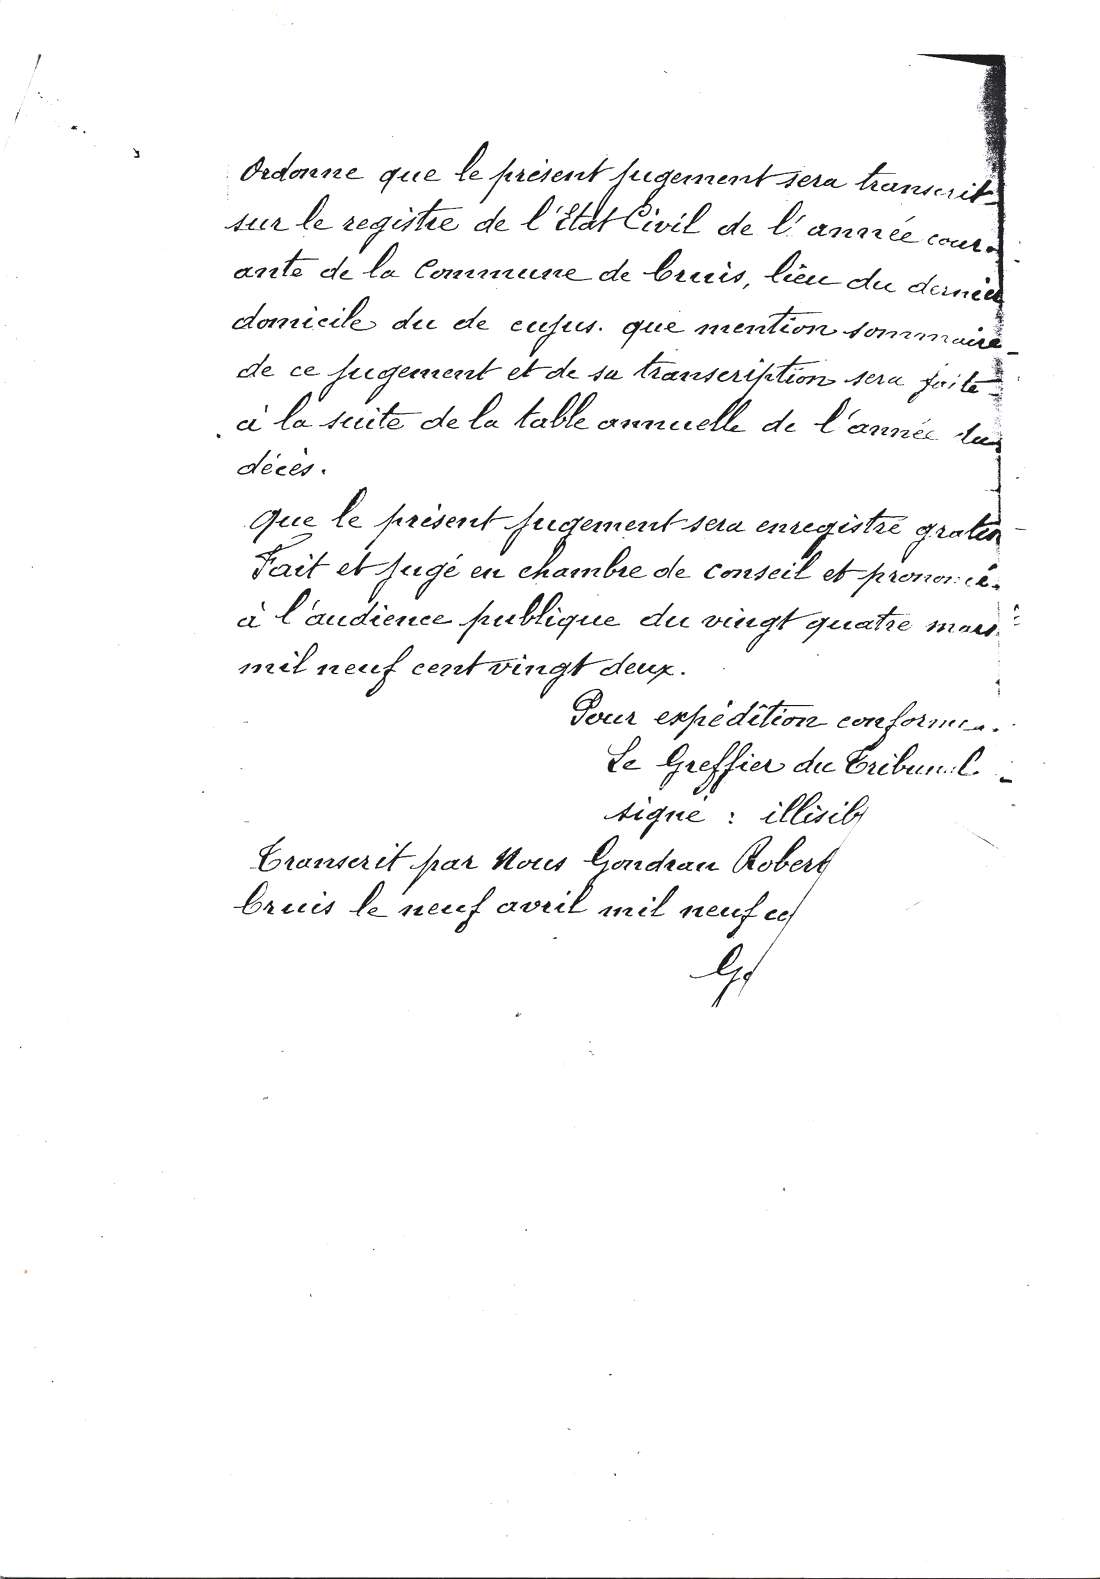 Ordonne que le présent jugement sera transcrit
sur le registre de l'Etat Civil de l'année cour-
ante de la Commune de Cruis, lieu du dernier
domicile du de cujus. que mention sommaire
de ce jugement et de sa transcription sera faite
à la suite de la table annuelle de l'année du
décès.
Que le présent jugement sera enregistré gratis
Fait et jugé en chambre de conseil et prononcé
à l'audience publique du vingt quatre mars
mil neuf cent vingt deux.
Pour expédition conforme.
Le Greffier du Tribunal.
signé : illisib
Transcrit par Nous Gondran Robert
Cruis le neuf avril mil neuf ce
G